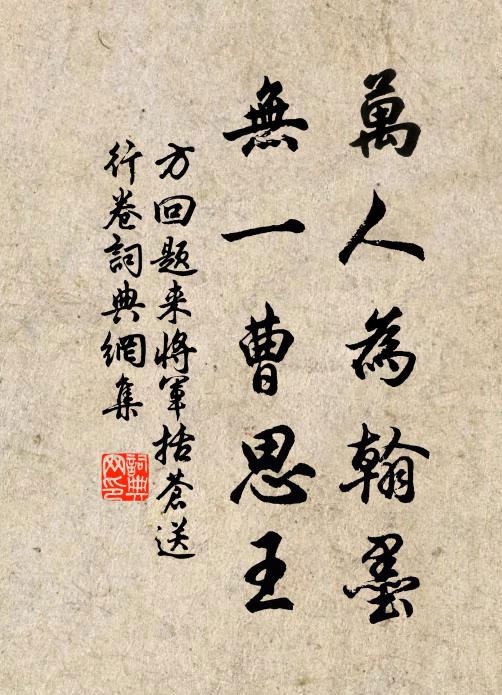 萬人為翰墨
無一曹思王
方回题来將軍括蒼送
行卷詞典網集
詞典
网印